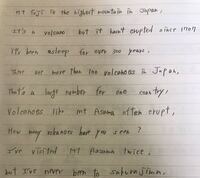 Mt Fuji is the highest mountain in Japan,
It's a volcano but it hasn't erupted since 1707
It's been asleep for over 300 years.
There are more than 100 volcanoes in Japan,
That's a large number for one country,
Volcanoes like Mt Asama often erupt,
How many volcanoes have you seen?
I've visited Mt Aasama twice,
but I've never been to Sakurajima.